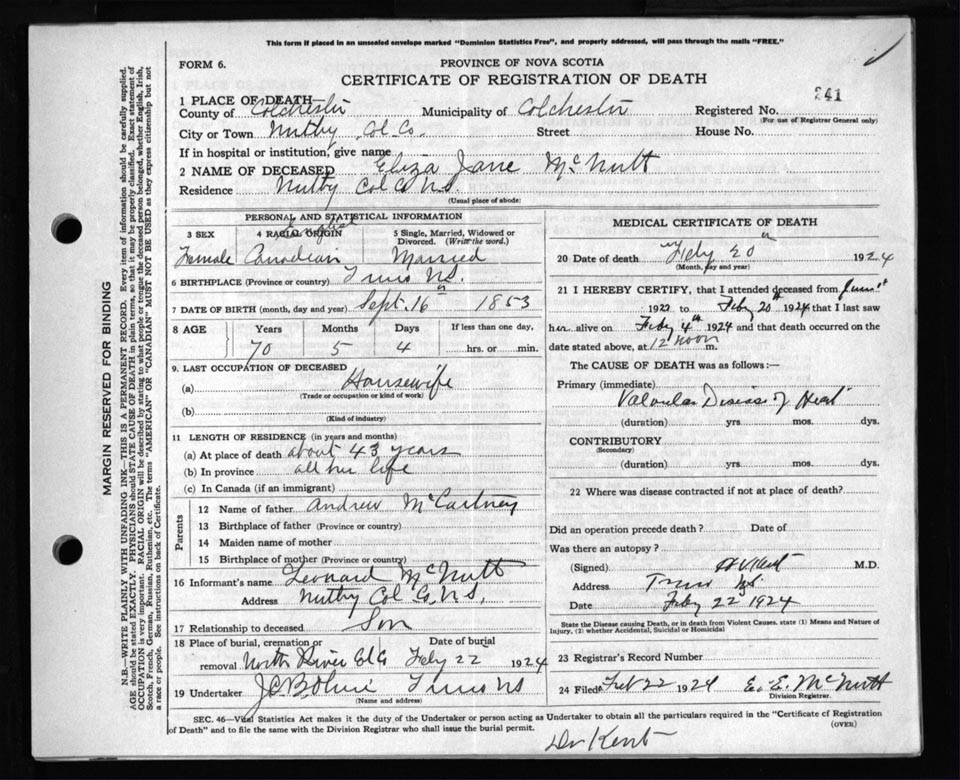 This form if placed in an unsealed envelope marked "Dominion Statistics Free", and properly addressed, will pass through the mails "FREE."
FORM 6.
PROVINCE OF NOVA SCOTIA
CERTIFICATE OF REGISTRATION OF DEATH
241
1 PLACE OF DEATH—
County of Colchester Municipality of Colchester Registered No.
(For use of Registrar General only)
City or Town Nutby Col. Co. Street House No.
If in hospital or institution, give name
2 NAME OF DECEASED Eliza Jane McNutt
Residence Nutby Col Co N.S.
(Usual place of abode)
PERSONAL AND STATISTICAL INFORMATION
3 SEX 4 RACIAL ORIGIN 5 Single, Married, Widowed or Divorced. (Write the word.)
English
Female Canadian Married
6 BIRTHPLACE (Province or country) Truro N.S.
7 DATE OF BIRTH (month, day and year) Sept. 16th 1853
8 AGE Years Months Days If less than one day,
70 5 4 hrs. or min.
9. LAST OCCUPATION OF DECEASED
(a) Housewife
(Trade or occupation or kind of work)
(b)
(Kind of industry)
11 LENGTH OF RESIDENCE (in years and months)
(a) At place of death about 43 years
(b) In province all her life
(c) In Canada (if an immigrant)
Parents
12 Name of father Andrew McCartney
13 Birthplace of father (Province or country)
14 Maiden name of mother
15 Birthplace of mother (Province or country)
16 Informant's name Leonard McNutt
Address Nutby Col Co, N.S.
17 Relationship to deceased Son
18 Place of burial, cremation or removal North River Col Co Date of burial Feby 22 1924
19 Undertaker Truro NS
(Name and address)
MEDICAL CERTIFICATE OF DEATH
20 Date of death Feby 20th 1924
(Month, day and year)
21 I HEREBY CERTIFY, that I attended deceased from June 1st
1922 to Feby 20th 1924 that I last saw
her alive on Feby 4th 1924 and that death occurred on the
date stated above, at 12 noon m.
The CAUSE OF DEATH was as follows:—
Primary (immediate)
Valvular Disease of Heart
(duration) yrs. mos. dys.
CONTRIBUTORY
(Secondary)
(duration) yrs. mos. dys.
22 Where was disease contracted if not at place of death?
Did an operation precede death? Date of
Was there an autopsy?
(Signed) H V Kent M.D.
Address Truro NS
Date Feby 22 1924
State the Disease causing Death, or in death from Violent Causes. state (1) Means and Nature of Injury, (2) whether Accidental, Suicidal or Homicidal
23 Registrar's Record Number
24 Filed Feb 22 1924 E. E. McNutt
Division Registrar.
SEC. 46—Vital Statistics Act makes it the duty of the Undertaker or person acting as Undertaker to obtain all the particulars required in the "Certificate of Registration of Death" and to file the same with the Division Registrar who shall issue the burial permit.
(OVER)
Dr Kent
MARGIN RESERVED FOR BINDING
N.B.—WRITE PLAINLY WITH UNFADING INK—THIS IS A PERMANENT RECORD. Every item of information should be carefully supplied.
AGE should be stated EXACTLY. PHYSICIANS should STATE CAUSE OF DEATH in plain terms, so that it may be properly classified. Exact statement of
OCCUPATION is very important. RACIAL ORIGIN will be described by stating to what people or tongue the deceased person belonged, whether English, Irish,
Scotch, French, German, Russian, Ruthenian, etc. The terms "AMERICAN" OR "CANADIAN" MUST NOT BE USED as they express citizenship but not
a race or people. See instructions on back of Certificate.